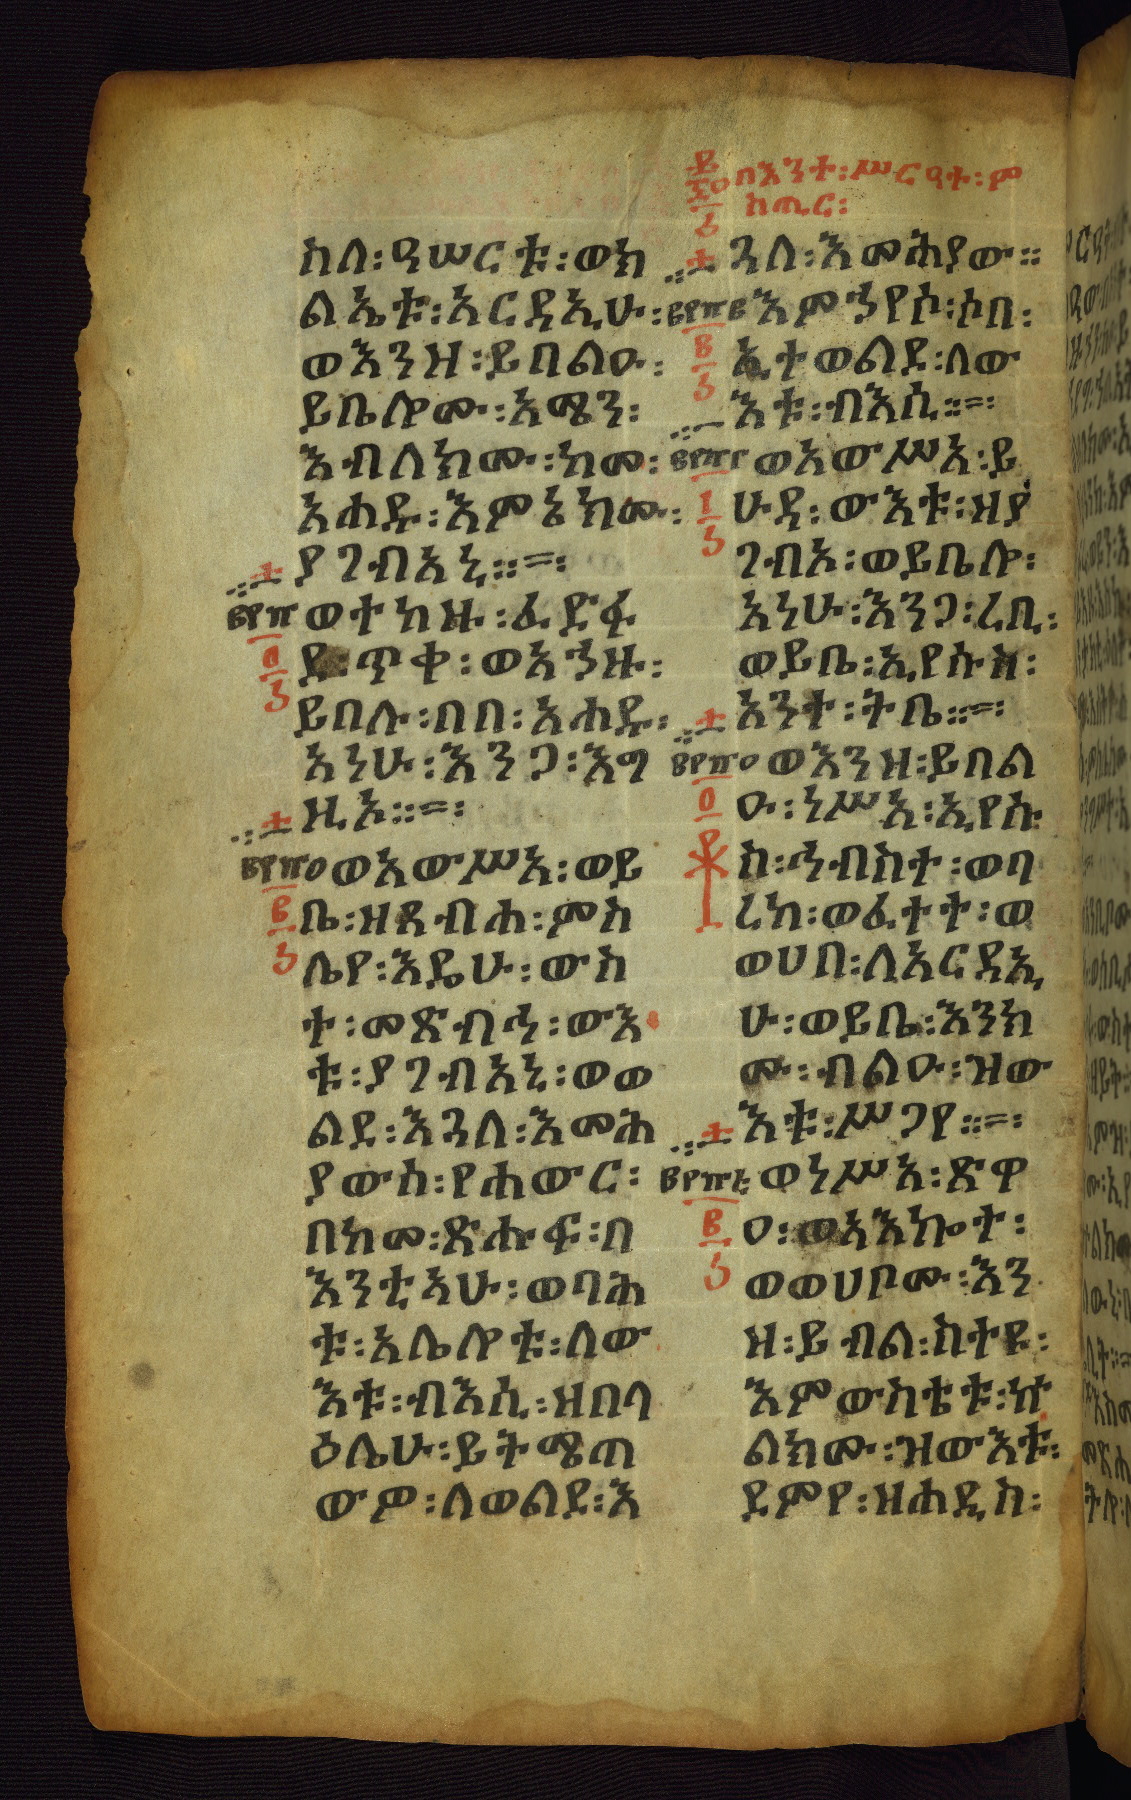 በእንተ፡ሥርዓተ፡ም
ስጢር፡
ስለ፡ዓሠርቱ፡ወክ
ልኤቱ፡አርዳኢሁ፡
ወእንዘ፡ይበልዑ፡
ይቤሎሙ፡አሜን፡
እብለክሙ፡ከመ፡
አሐዱ፡እምኔክሙ፡
ያገብአኒ።
ወተከዙ፡ፈድፋ
ደ፡ጥቀ፡ወአኀዙ፡
ይበሉ፡በበ፡አሐዱ፡
አነሁ፡እንጋ፡እግ
ዚኦ።
ወአውሥአ፡ወይ
ቤ፡ዘጸብሐ፡ምስ
ሌየ፡እዴሁ፡ውስ
ተ፡መጽብኅ፡ውእ
ቱ፡ያገብአኒ፡ወወ
ልደ፡እጓለ፡እመሕ
ያውስ፡የሐውር፡
በከመ፡ጽሑፍ፡በ
እንቲአሁ፡ወባሕ
ቱ፡አሌሎቱ፡ለው
እቱ፡ብእሲ፡ዘበላ
ዕሌሁ፡ይትሜጠ
ውዎ፡ለወልደ፡እ
ጓለ፡እመሕያው።
እምኀየሶ፡ሶበ፡
ኢተወልደ፡ለው
እቱ፡ብእሲ።
ወአውሥአ፡ይ
ሁዳ፡ውእቱ፡ዘያ
ገብኦ፡ወይቤሎ፡
አነሁ፡እንጋ፡ረቢ፡
ወይቤ፡ኢየሱስ፡
አንተ፡ትቤ።
ወእንዘ፡ይበል
ዑ፡ነሥአ፡ኢየሱ
ስ፡ኅብስተ፡ወባ
ረከ፡ወፈተተ፡ወ
ወሀበ፡ለአርዳኢ
ሁ፡ወይቤ፡እንክ
ሙ፡ብልዑ፡ዝው
እቱ፡ሥጋየ።
ወነሥአ፡ጽዋ
ዐ፡ወአእኰተ፡
ወወሀቦሙ፡እን
ዘ፡ይብል፡ስተዩ፡
እምውስቴቱ፡ኵ
ልክሙ፡ዝውእቱ፡
ደምየ፡ዘሐዲስ፡